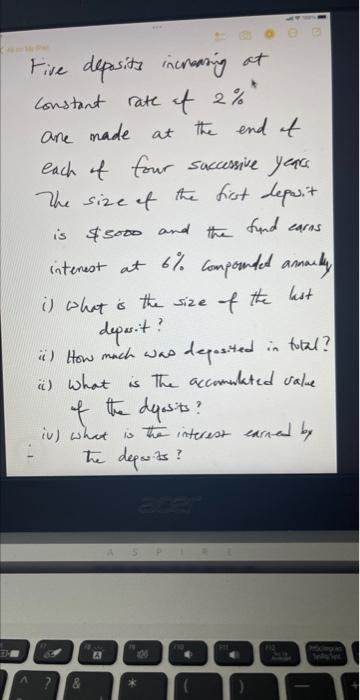 Five deposits increasing at
constant rate of 2%
are made at the end of
each of four successive years
The size of the first deposit
is $5000 and the fund earns
interest at 6% compounded annually
i) what is the size of the last
deposit?
ii) How much was deposited in total?
ii) what is the accumulated value
of the deposits?
iv) what is the interest earned by
the deposits?
acer
ASPIRE
^ ? & * ( )